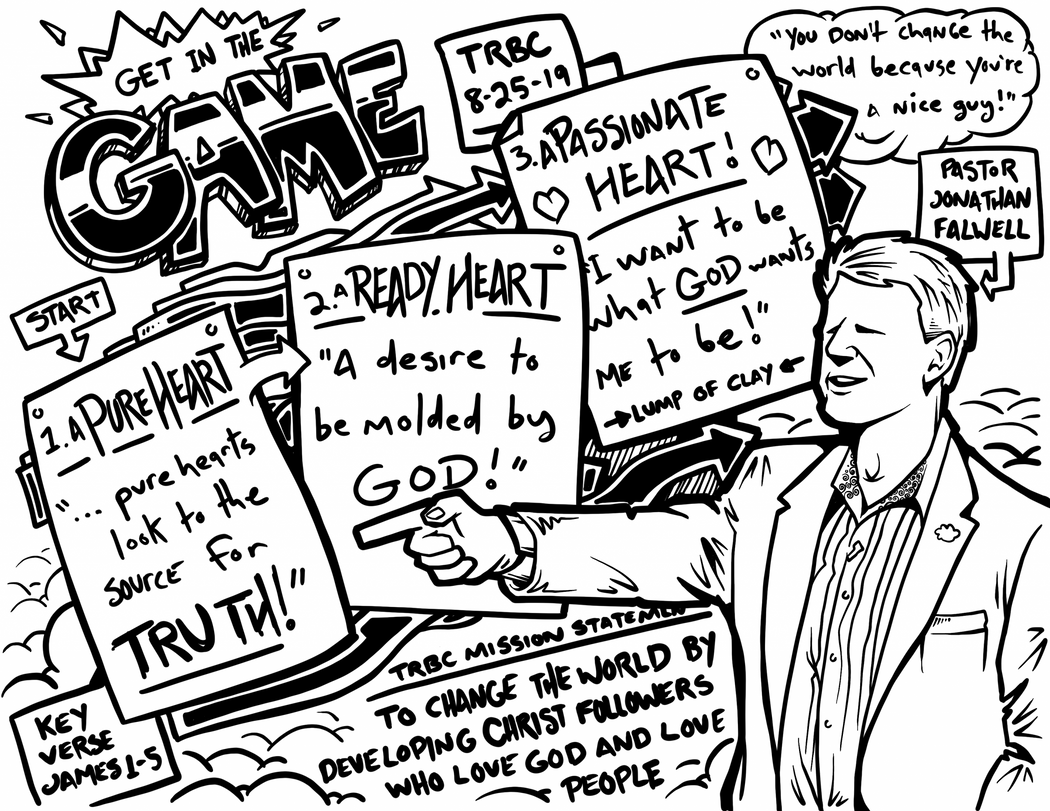 GET IN THE
GAME
TRBC
8-25-19
"You Don't change the
world because you're
a nice guy!"
PASTOR
JONATHAN
FALWELL
START
1. A PURE HEART
"... pure hearts
look to the
source for
TRUTH!"
2. A READY HEART
"A desire to
be molded by
GOD!"
3. A PASSIONATE
HEART!
"I want to be
what GOD wants
ME to be!"
LUMP OF CLAY
KEY
VERSE
JAMES 1-5
TRBC MISSION STATEMEN
TO CHANGE THE WORLD BY
DEVELOPING CHRIST FOLLOWERS
WHO LOVE GOD AND LOVE
PEOPLE